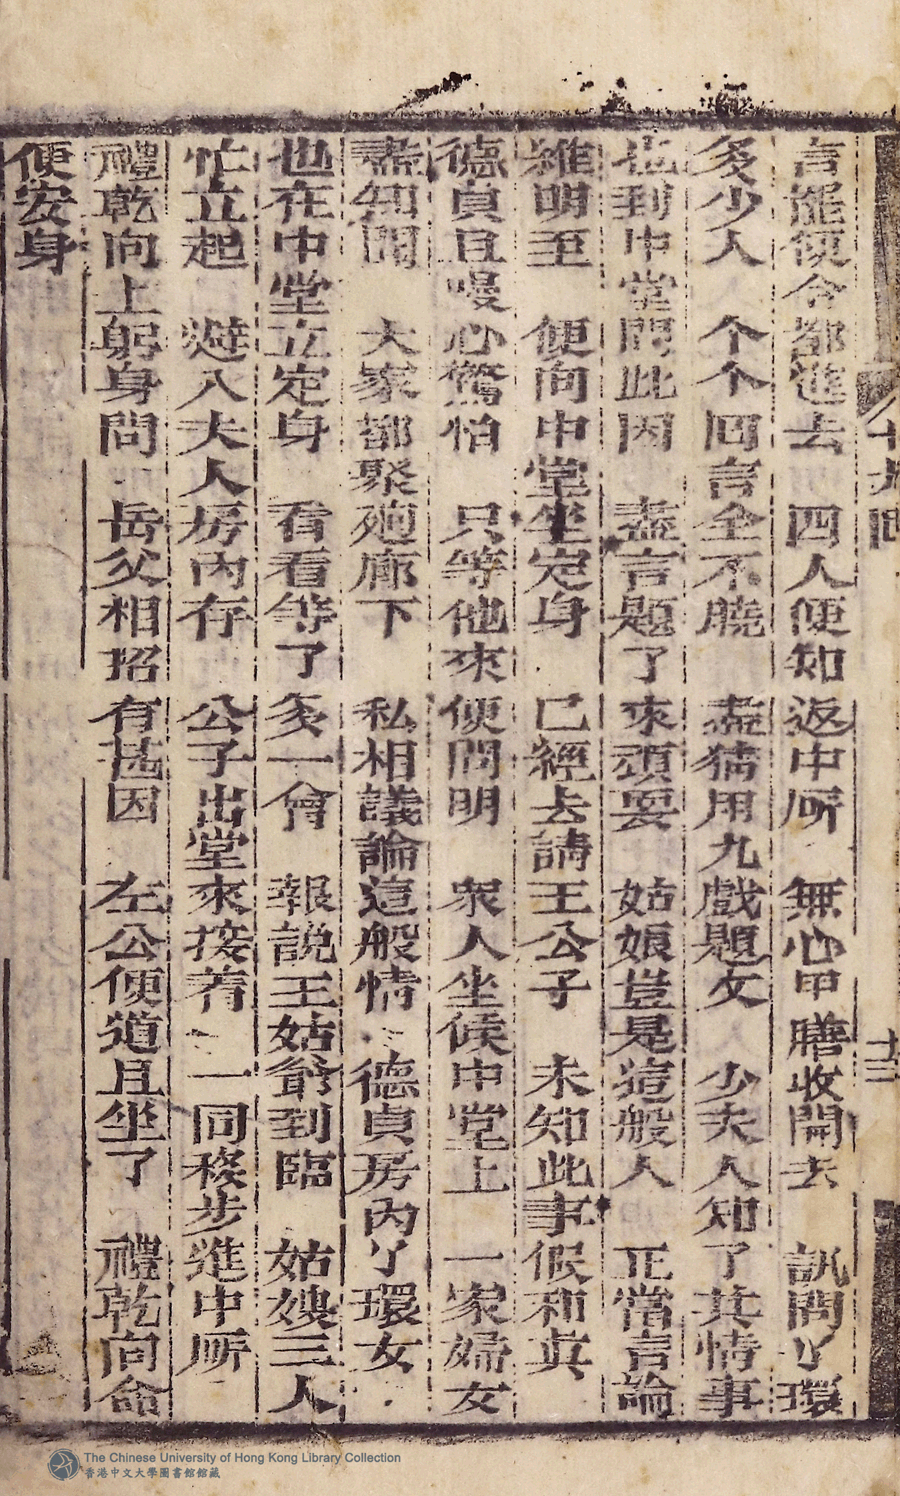 言罷便令都進去 四人便知返中所 無心甲膳收開去 訊問丫環
多少人 个个回言全不曉 盡猜用九戲題文 少夫人知了其情事
也到中堂問此因 盡言題了來頭要 姑娘豈是這般人 正當言論
維明至 便向中堂坐定身 已經去請王公子 未知此事假和真
德貞且嘆心驚怕 只等他來便問明 衆人坐候中堂上 一家婦女
盡知聞 大家都聚廻廊下 私相議論這般情 德貞房內丫環女
也在中堂立定身 看看等了多一會 報說王姑爺到臨 姑嫂三人
忙立起 避入夫人房內存 公子出堂來接着 一同移步進中所
禮乾向上躬身問 岳父相招有甚因 左公便道且坐了 禮乾向命
便安身
八十九回
十三
The Chinese University of Hong Kong Library Collection
香港中文大學圖書館館藏